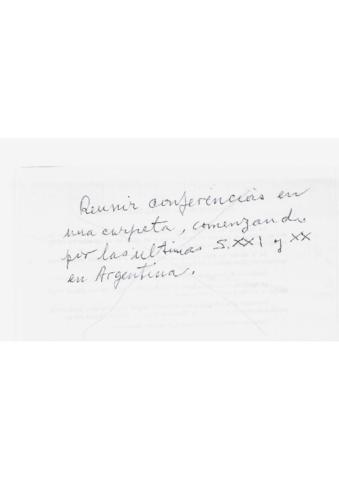 Reunir conferencias en
una carpeta, comenzando
por las ultimas S.XXI y XX
en Argentina.